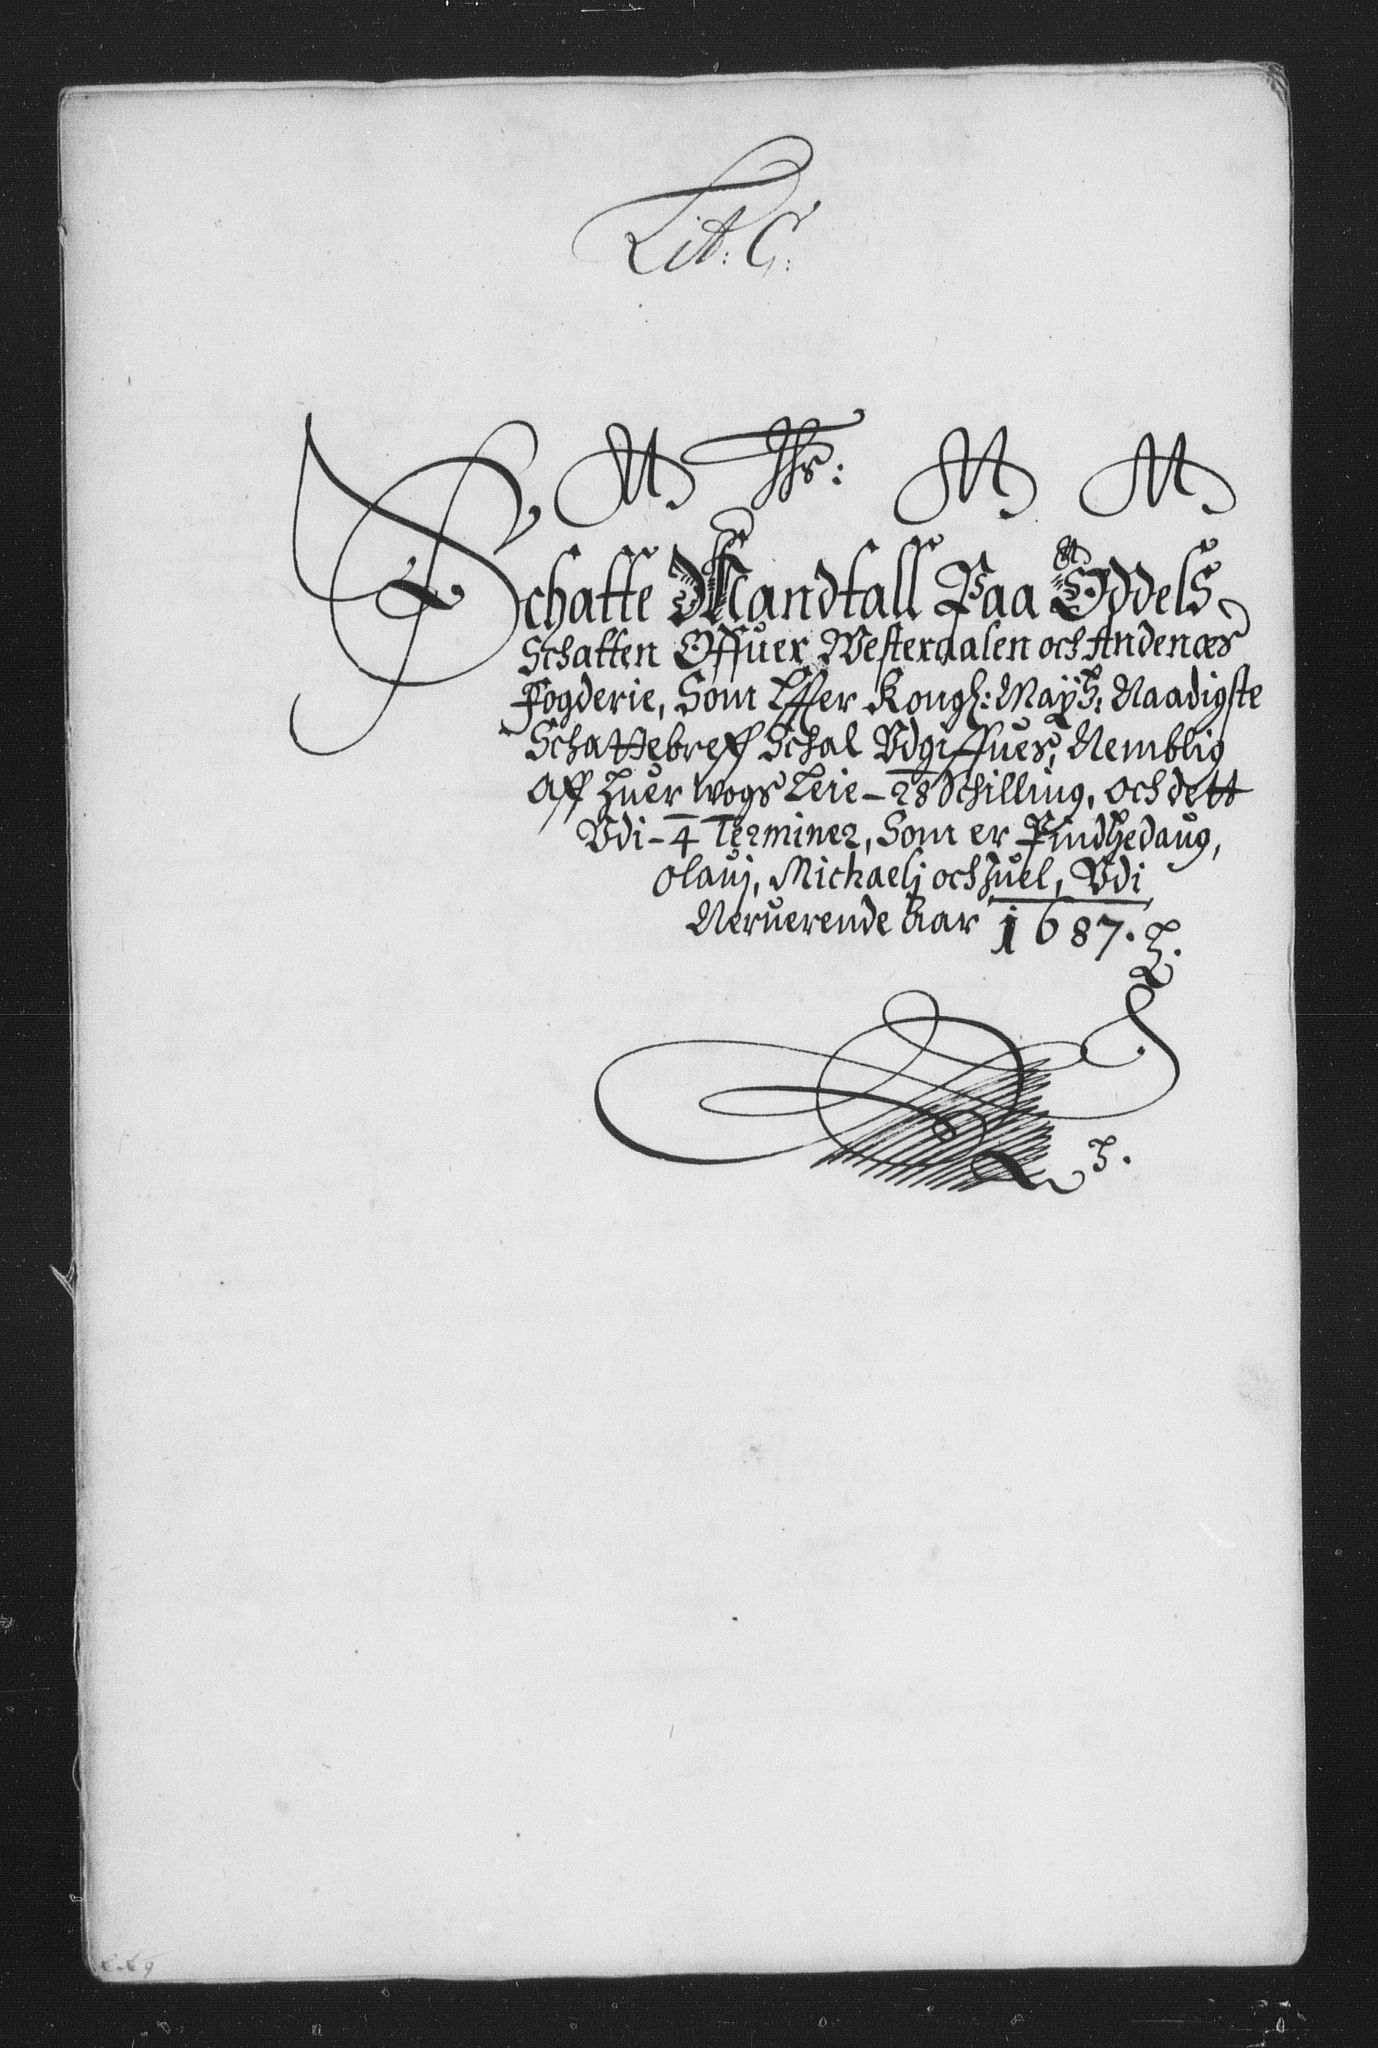 Lit: C:
Schatte Mandtall Paa Oddels
Schatten Offuer Westeraalen och Andenæs
Fogderie, Som Effter Kongl: Mayts: Naadigste
Schattebreff Schal Vdgiffues, Nemblig
Aff huer wogs Leie - 28 Schilling, och dett
Vdi - 4 Terminer, Som er Pindtzedaug,
Olauj, Michaelj och Juel, Vdi
Neruerende Aar 1687.